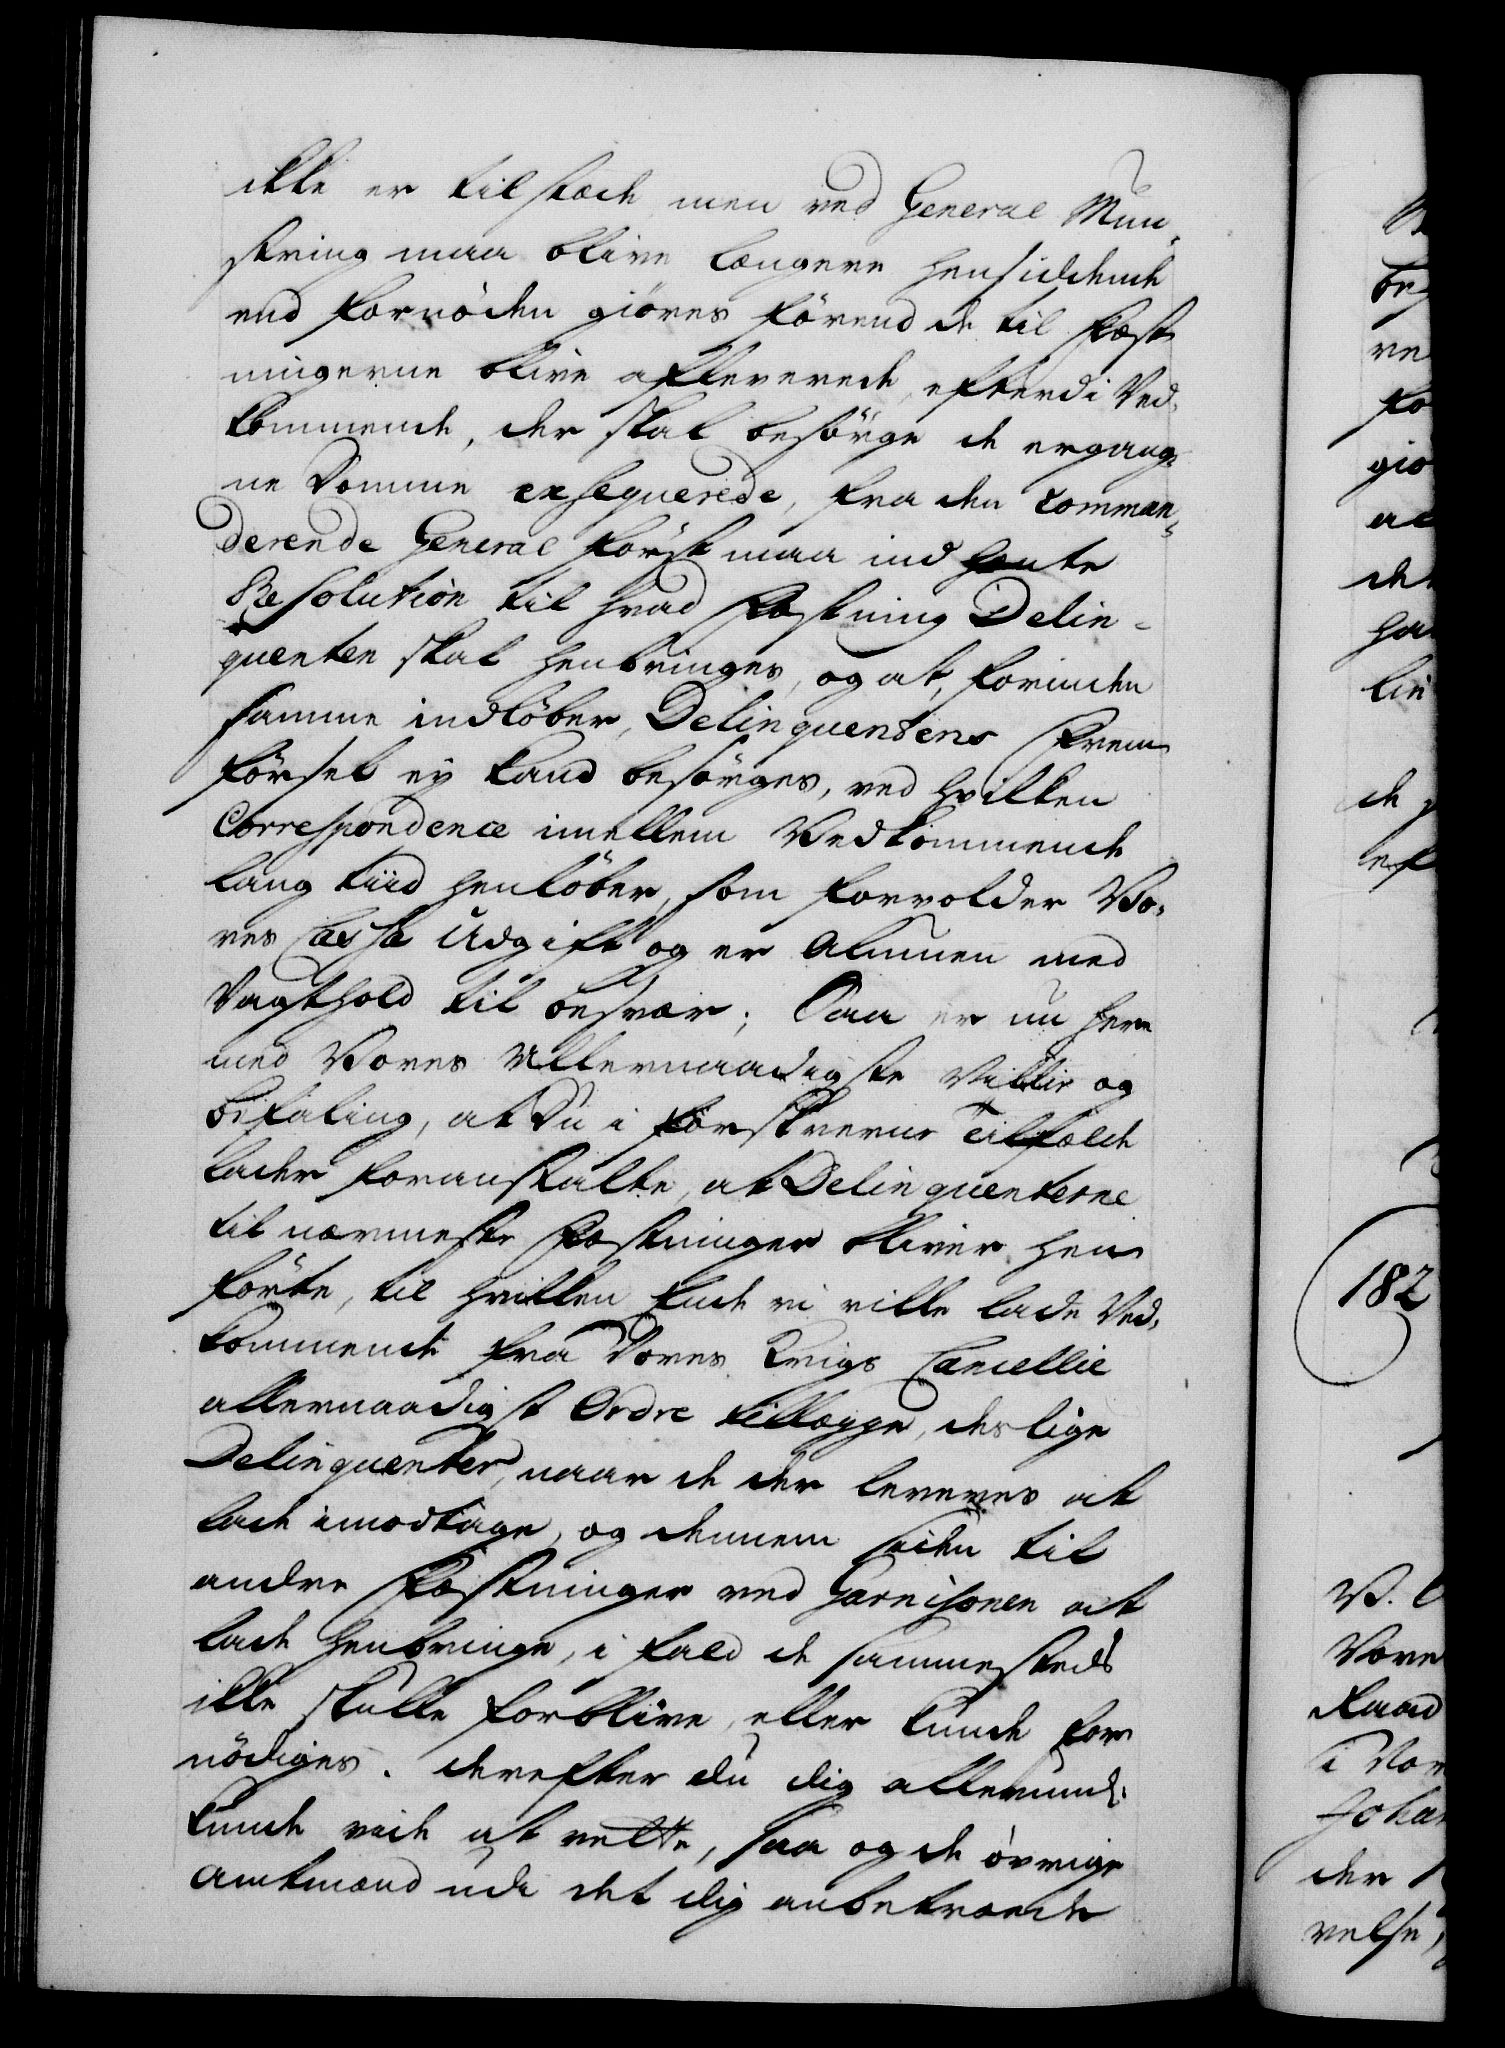 ikke er tilstæde, men ved General Mun¬
string maa blive længere hensiddende
end fornöden giöres förend de til Fæst
ningerne blive afleverede, efterdi Ved¬
kommende, der skal besörge de ergang¬
ne Domme exseqverede, fra den comman¬
derende General först maa indhente
Resolution til hvad Fæstning Delin¬
quenten skal henbringes, og at, forinden
samme indlöber, Delinquentens Frem
förset ej kand besörges, ved hvilken
Correspondence imellem Vedkommende
lang tiid henlöber, som forvolder Vo¬
res Cassa Udgift og er Almuen med
Vagthold til besvær; Saa er nu her
med Vores Allernaadigste Villie og
befaling, at Du i forskrevne Tilfælde
lader foranstalte, at Delinquenterne
til nærmeste Fæstninger bliver hen
förte, til hvilken Ende vi ville lade Ved¬
kommende fra Vores Krigs Cancellie
allernaadigst Ordre tillægge, deslige
Delinquenter, naar de der leveres at
lade imodtage, og dennem siden til
andre Fæstninger ved Garnisonen at
lade henbringe, i fald de sammesteds
ikke skulle forblive, eller kunde for
nödiges. Derefter du dig allerund¬
kunde viide at rette, saa og de övrige
Amtmænd udi det dig anbetroede
182